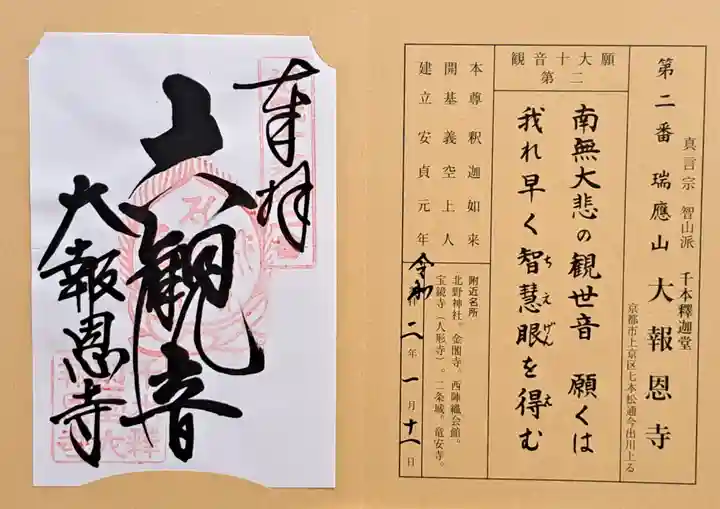 第二番 瑞應山 大報恩寺
真言宗 智山派 千本釋迦堂
京都市上京区七本松通今出川上る
観音十大願
第二
南無大悲の観世音 願くは
我れ早く智慧眼を得む
ちえげん え
本尊 釈迦如来
開基 義空上人
建立 安貞元年
附近名所
北野神社。金閣寺。西陣織会館。
宝鏡寺(人形寺)。二条城。竜安寺。
令和二年一月十一日
奉拝
六観音
大報恩寺